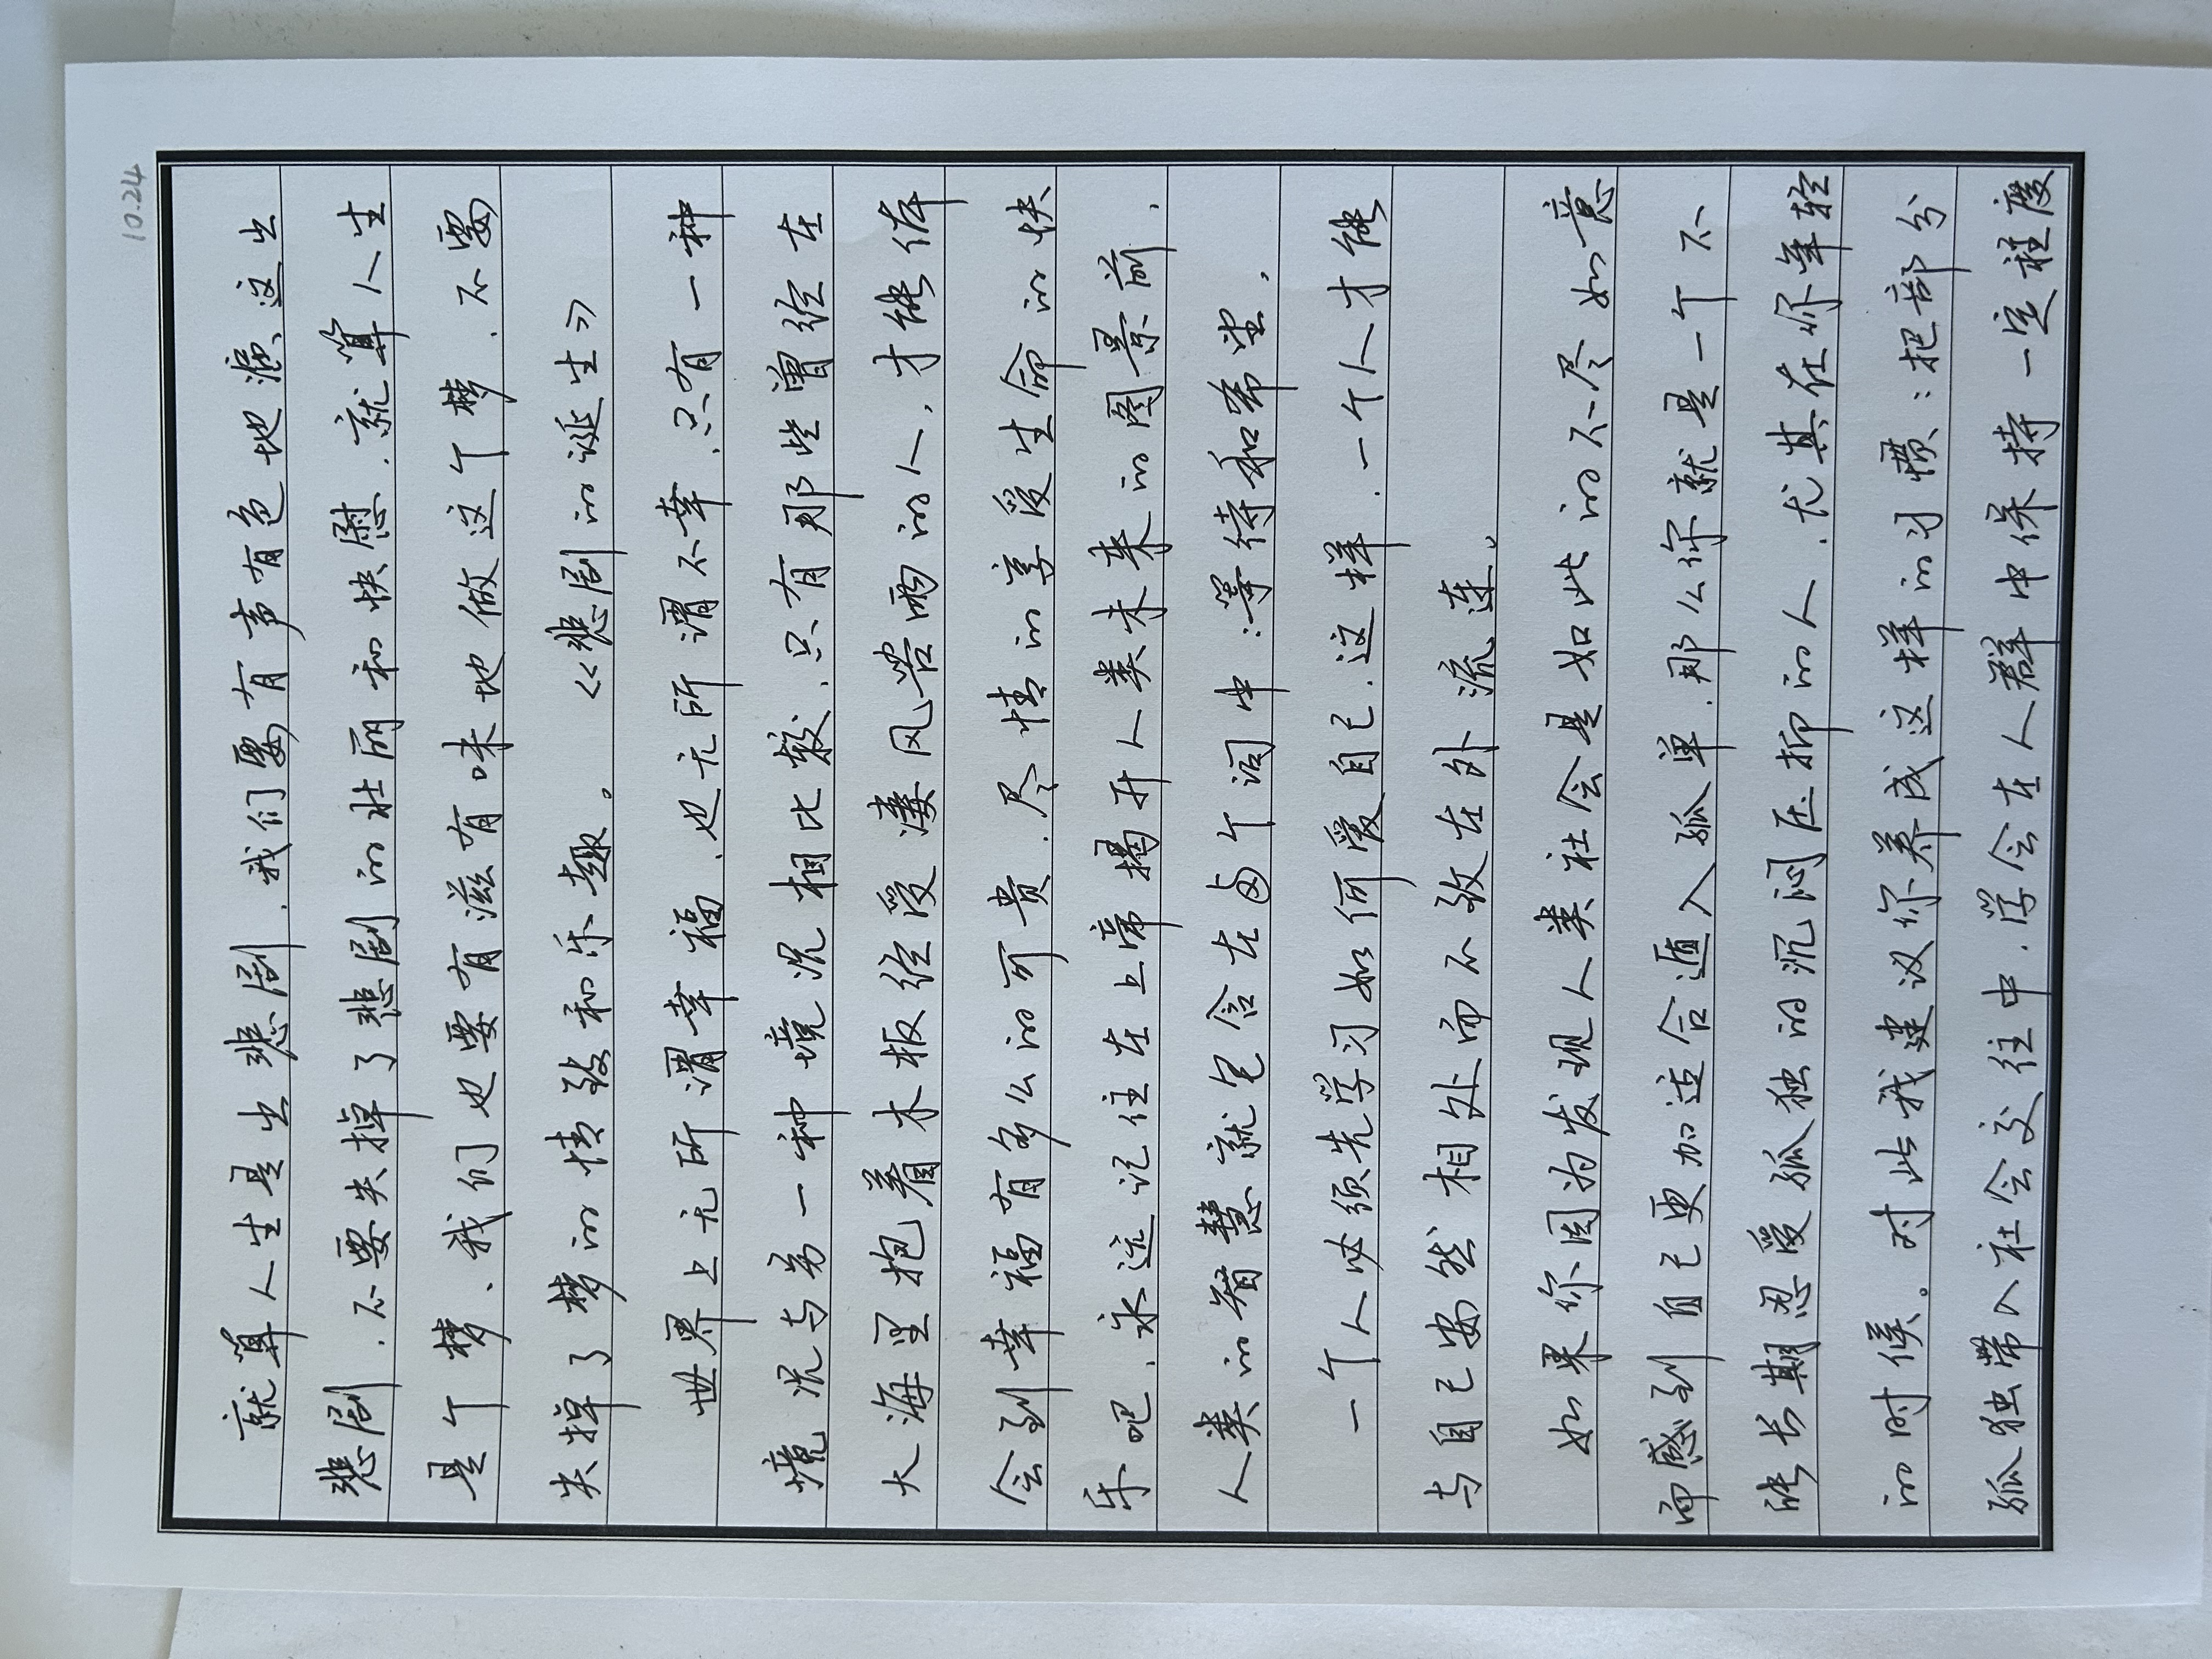 10.24
就算人生是出悲剧，我们要有声有色地演这出
悲剧，不要失掉了悲剧的壮丽和快慰，就算人生
是个梦，我们也要有滋有味地做这个梦，不要
失掉了梦的情致和乐趣。 《悲剧的诞生》
世界上无所谓幸福，也无所谓不幸，只有一种
境况与另一种境况相比较，只有那些曾经在
大海里抱着木板经受凄风苦雨的人，才能体
会到幸福有多么的可贵，尽情的享受生命的快
乐吧，永远记住在上帝揭开人类未来的图景前，
人类的智慧就包含在两个词中：等待和希望，
一个人必须先学习如何爱自己，这样，一个人才能
与自己安然相处而不致在外流连。
如果你因为发现人类社会是如此的不尽如意
而感到自己更加适合遁入孤单，那么你就是一个不
能长期忍受孤独的沉闷压抑的人，尤其在你年轻
的时候。对此我建议你养成这样的习惯：把部分
孤独带入社会交往中，学会在人群中保持一定程度